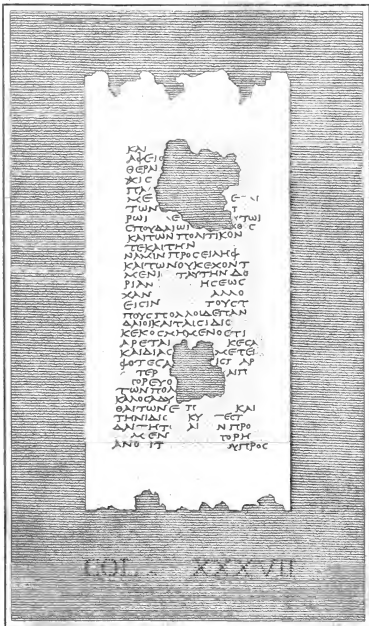 ΚΑΙ
ΑΦΕΙΟ
ΘΕΡΑΠ
ΚΙC
ΠΑΙ
ΜΕ Ε
ΤΩΝ Τ
ΡΩΙ Ε ΥΤΩΙ
CΠΟΥΔΑΙΩΙ ΧΘC
ΚΑΙΤΩΝΠΟΝΤΙΚΟΝ
ΤΕΚΑΙΤΗΝ
ΝΑΜΙΝΠΡΟCΕΙΛΗΦ
ΚΑΙΤΩΝΟΥΚΕΧΟΝΤ
ΜΕΝΙ ΤΑΥΤΗΝΔΟ
ΡΙΑΝ ΗCΕΩC
ΧΑΝ ΑΛΛΟ
ΕΙCΙΝ ΤΟΥCΤ
ΠΟΥCΠΟΛΛΟΙΔΕΠΑΝ
ΔΑΙΟΙΚΑΙΤΑΙCΙΔΙC
ΚΕΚΟCΜΗΜΕΝΟCΤΙ
ΑΡΕΤΑΙ ΚΕCΑ
ΚΑΙΔΙΑC ΜΕΤΕΙ
ΦΟΤΕCΑ ΙCΙ ΑΡ
ΤΕΡ ΑΙΠ
ΤΟΡΕΥΟ
ΤΩΝΠΟΛ
ΚΑΛΟCΑΔΥ
ΘΑΙΤΩΝΕ ΤΙ ΚΑΙ
ΤΗΝΙΔΙC ΚΥ ΤΕCΤ
ΔΑΝΤΗΤΙ ΑΙ ΝΠΡΟ
ΜΕΝ ΤΟΡΗ
ΑΝΟ ΙΤ ΛΥΠΡΟC
COL. XXXVII